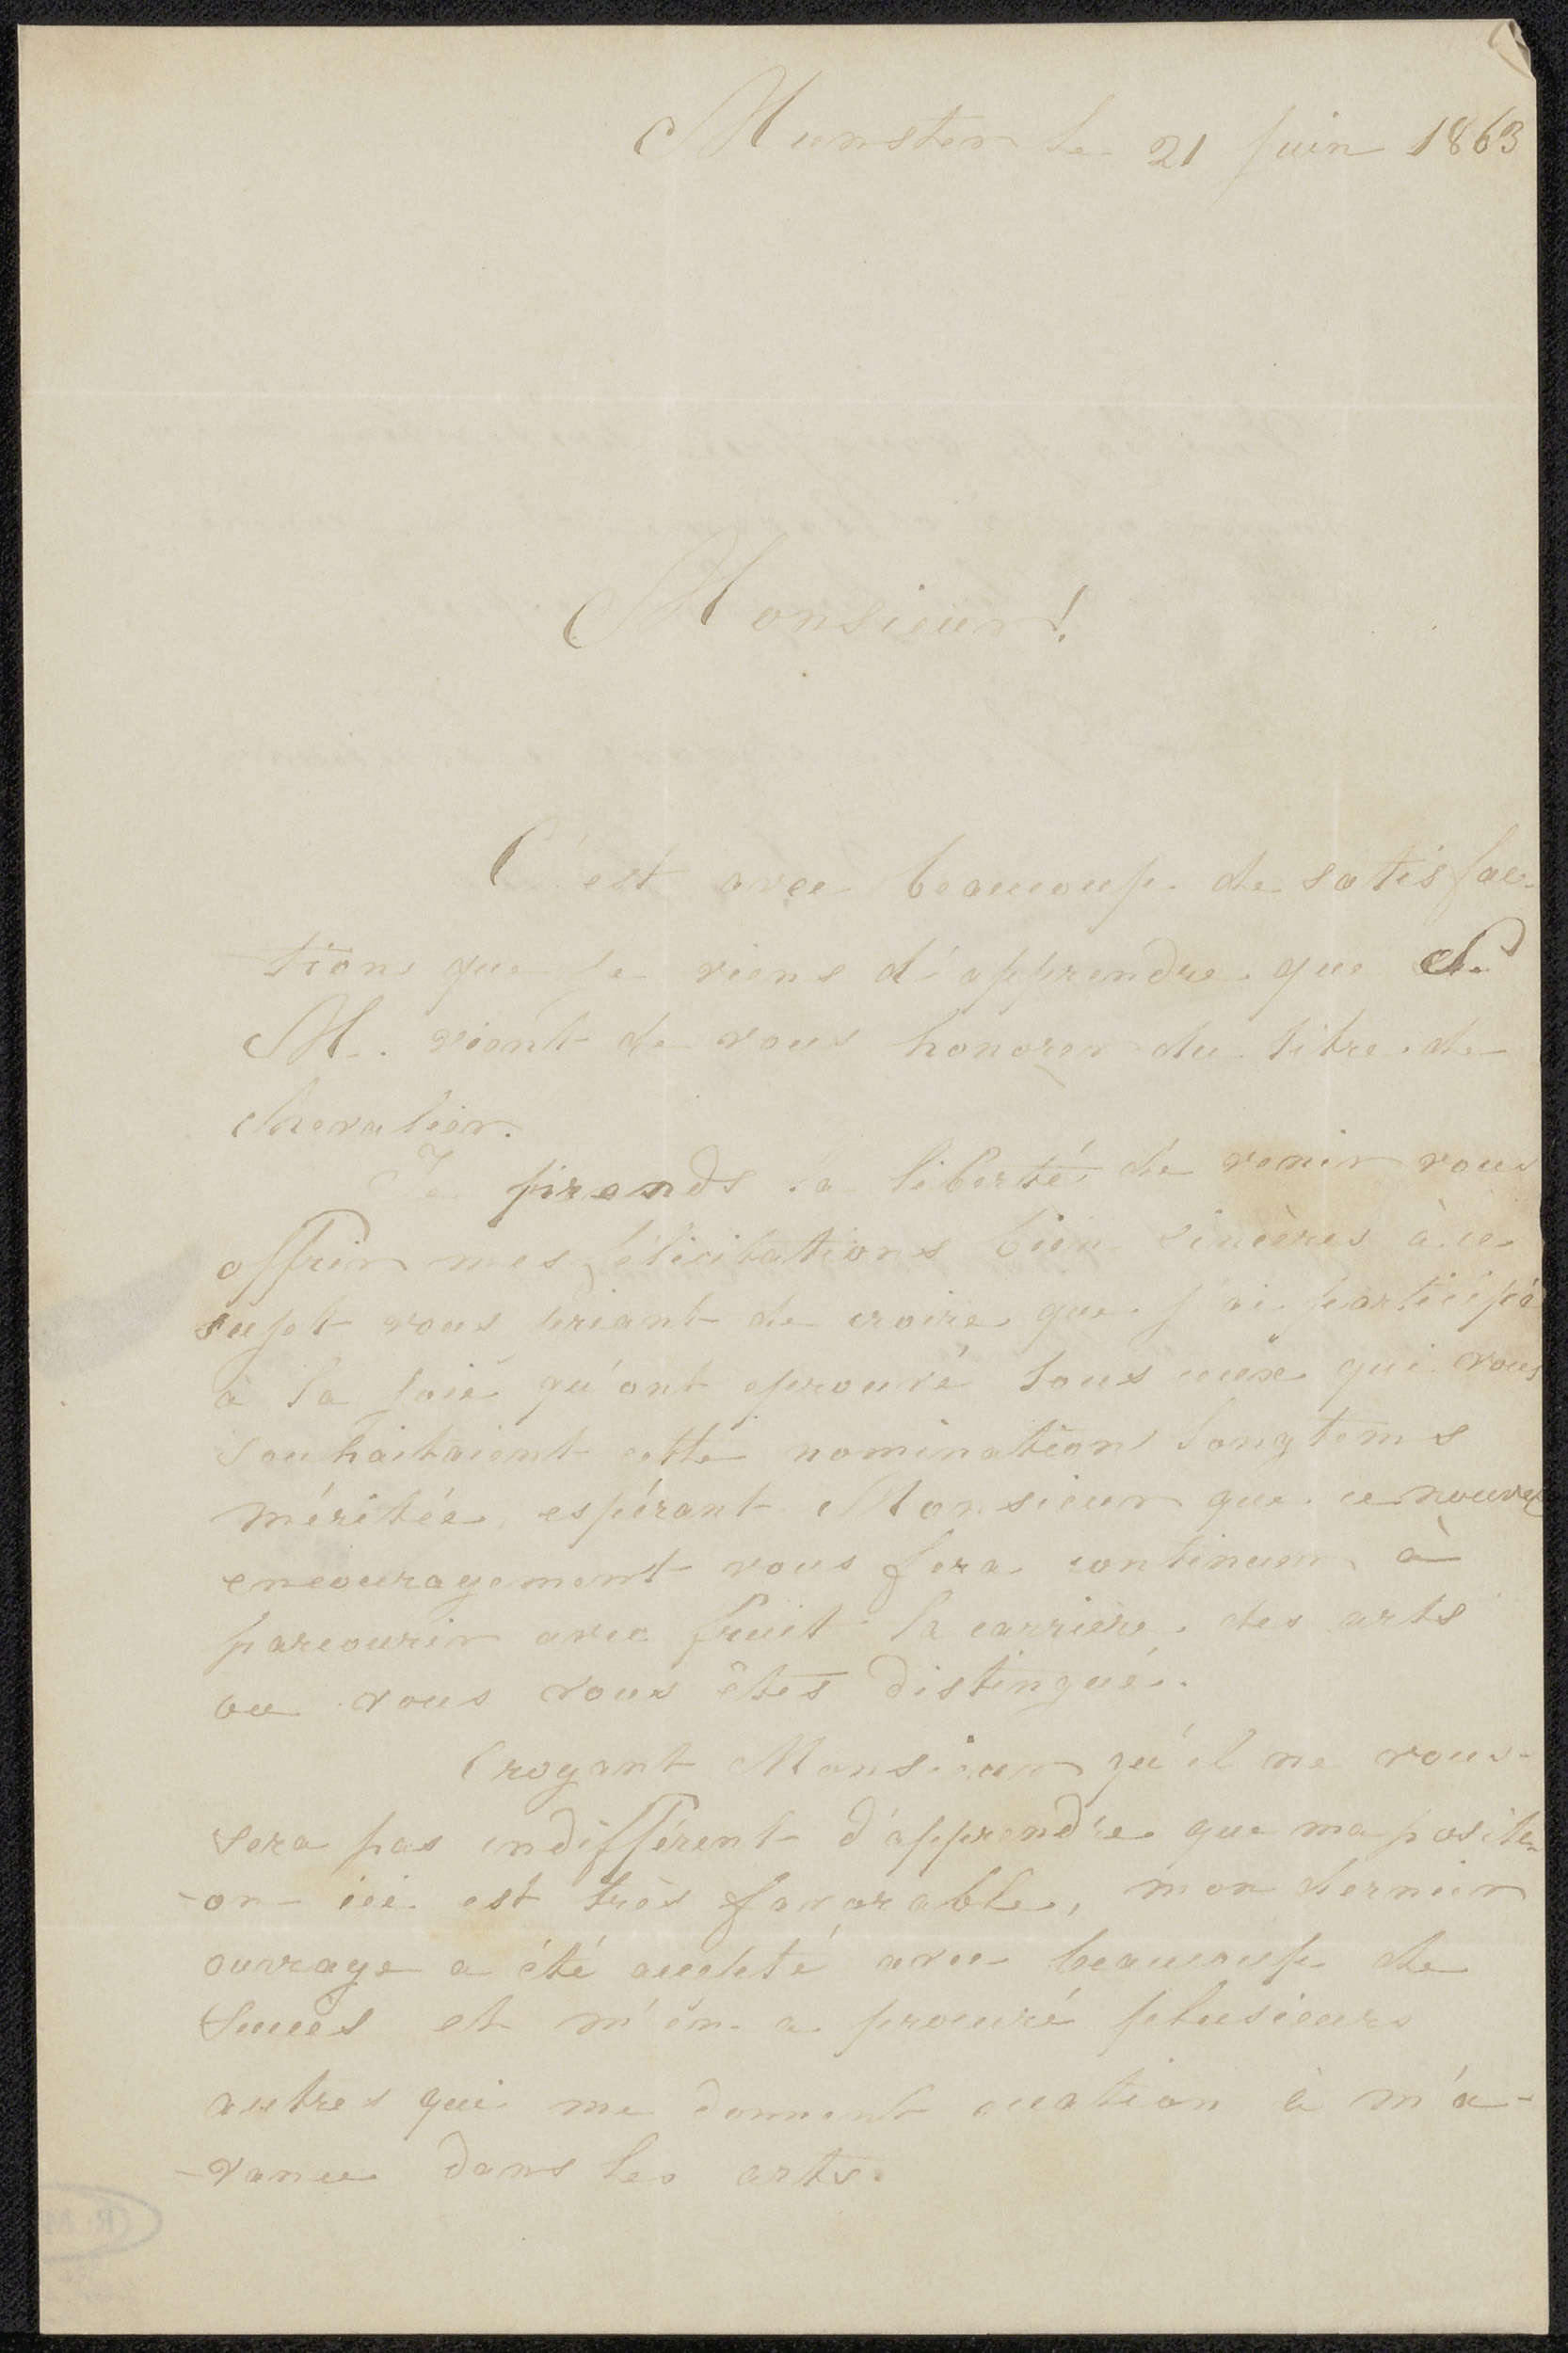 Munster le 21 Juin 1863
Monsieur!
C'est avec beaucoup de satisfac-
tion que je viens d'apprendre que S.
M. vient de vous honorer du titre de
chevalier.
Je prends la liberté de venir vous
offrir mes félicitations bien sincères à ce
sujet vous priant de croire que j'ai participé
à la joie qu'ont eprouvé tous ceux qui vous
souhaitaient cette nomination longtems
méritée espérant Monsieur que ce nouvel
encouragement vous fera continuer à
parcourir avec fruit la carrière des arts
ou vous vous êtes distingué.
Croyant Monsieur qu'il ne vous
sera pas indifférent d'apprendre que ma positi-
-on ici est très favorable, mon dernier
ouvrage a été accepté avec beaucoup de
succès et m'en a procuré plusieurs
autres qui me donnent ocation à m'a-
-vancer dans les arts.